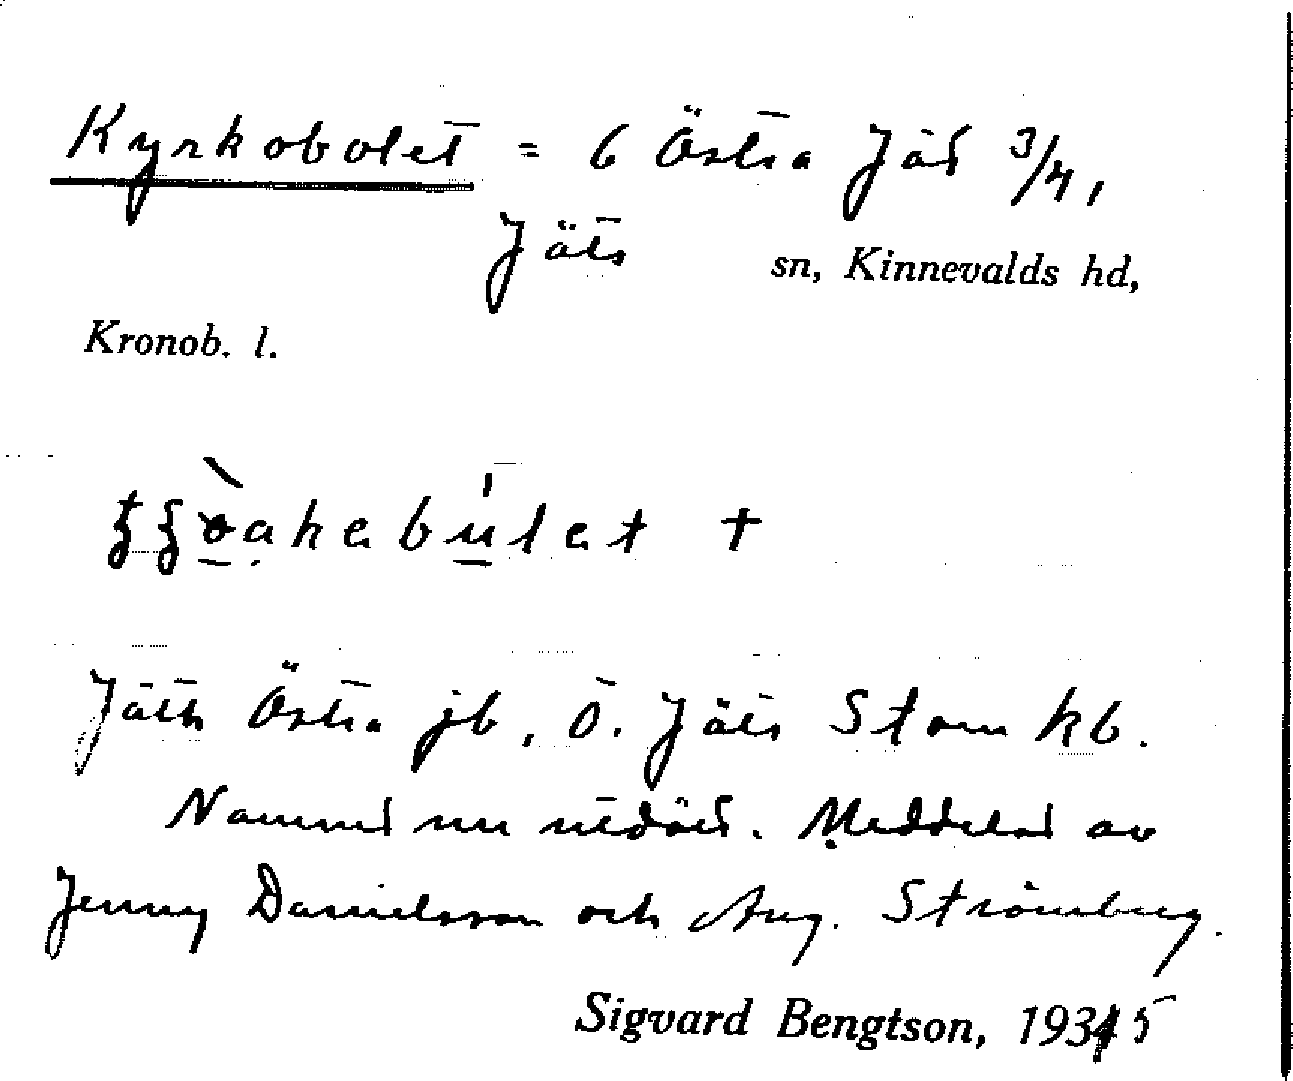 Kyrkobolet = 6 Östra Jät 3/4,
Jäts sn, Kinnevalds hd,
Kronob. l.
Jäth Östra jb, Ö. Jäts Stom kb.
Namnet nu utdött. Meddelat av
Jenny Danielsson och Aug. Strömberg.
Sigvard Bengtson, 1935